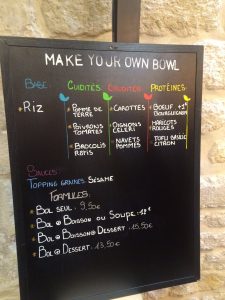 MAKE YOUR OWN BOWL
BASE: CUIDITÉS: CRUDITÉS: PROTÉINES:
RIZ
POMME DE TERRE
POIVRONS TOMATES
BROCOLIS ROTIS
CAROTTES
OIGNONS CELERI
NAVETS POMMES
BOEUF +1€ BOURGUIGNON
HARICOTS ROUGES
TOFU BASILIC CITRON
SAUCES:
TOPPING GRAINES: SÉSAME
FORMULES:
BOL SEUL: 9,50€
BOL + BOISSON OU SOUPE: 12€
BOL + BOISSON + DESSERT: 15,50€
BOL + DESSERT: 13,50€